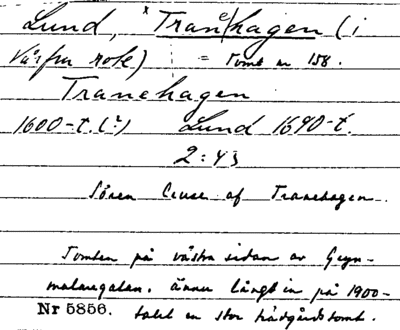 Lund, × Tranehagen (i
Vårfru rote) = Tomt nr 158.
Tranehagen
1600-t. (?) Lund 1690-t.
2:43
Sören Cruse af Tranehagen.
Tomten på västra sidan av Gryn-
malaregatan. ännu långt in på 1900-
Nr 5856. talet en stor trädgårdstomt.